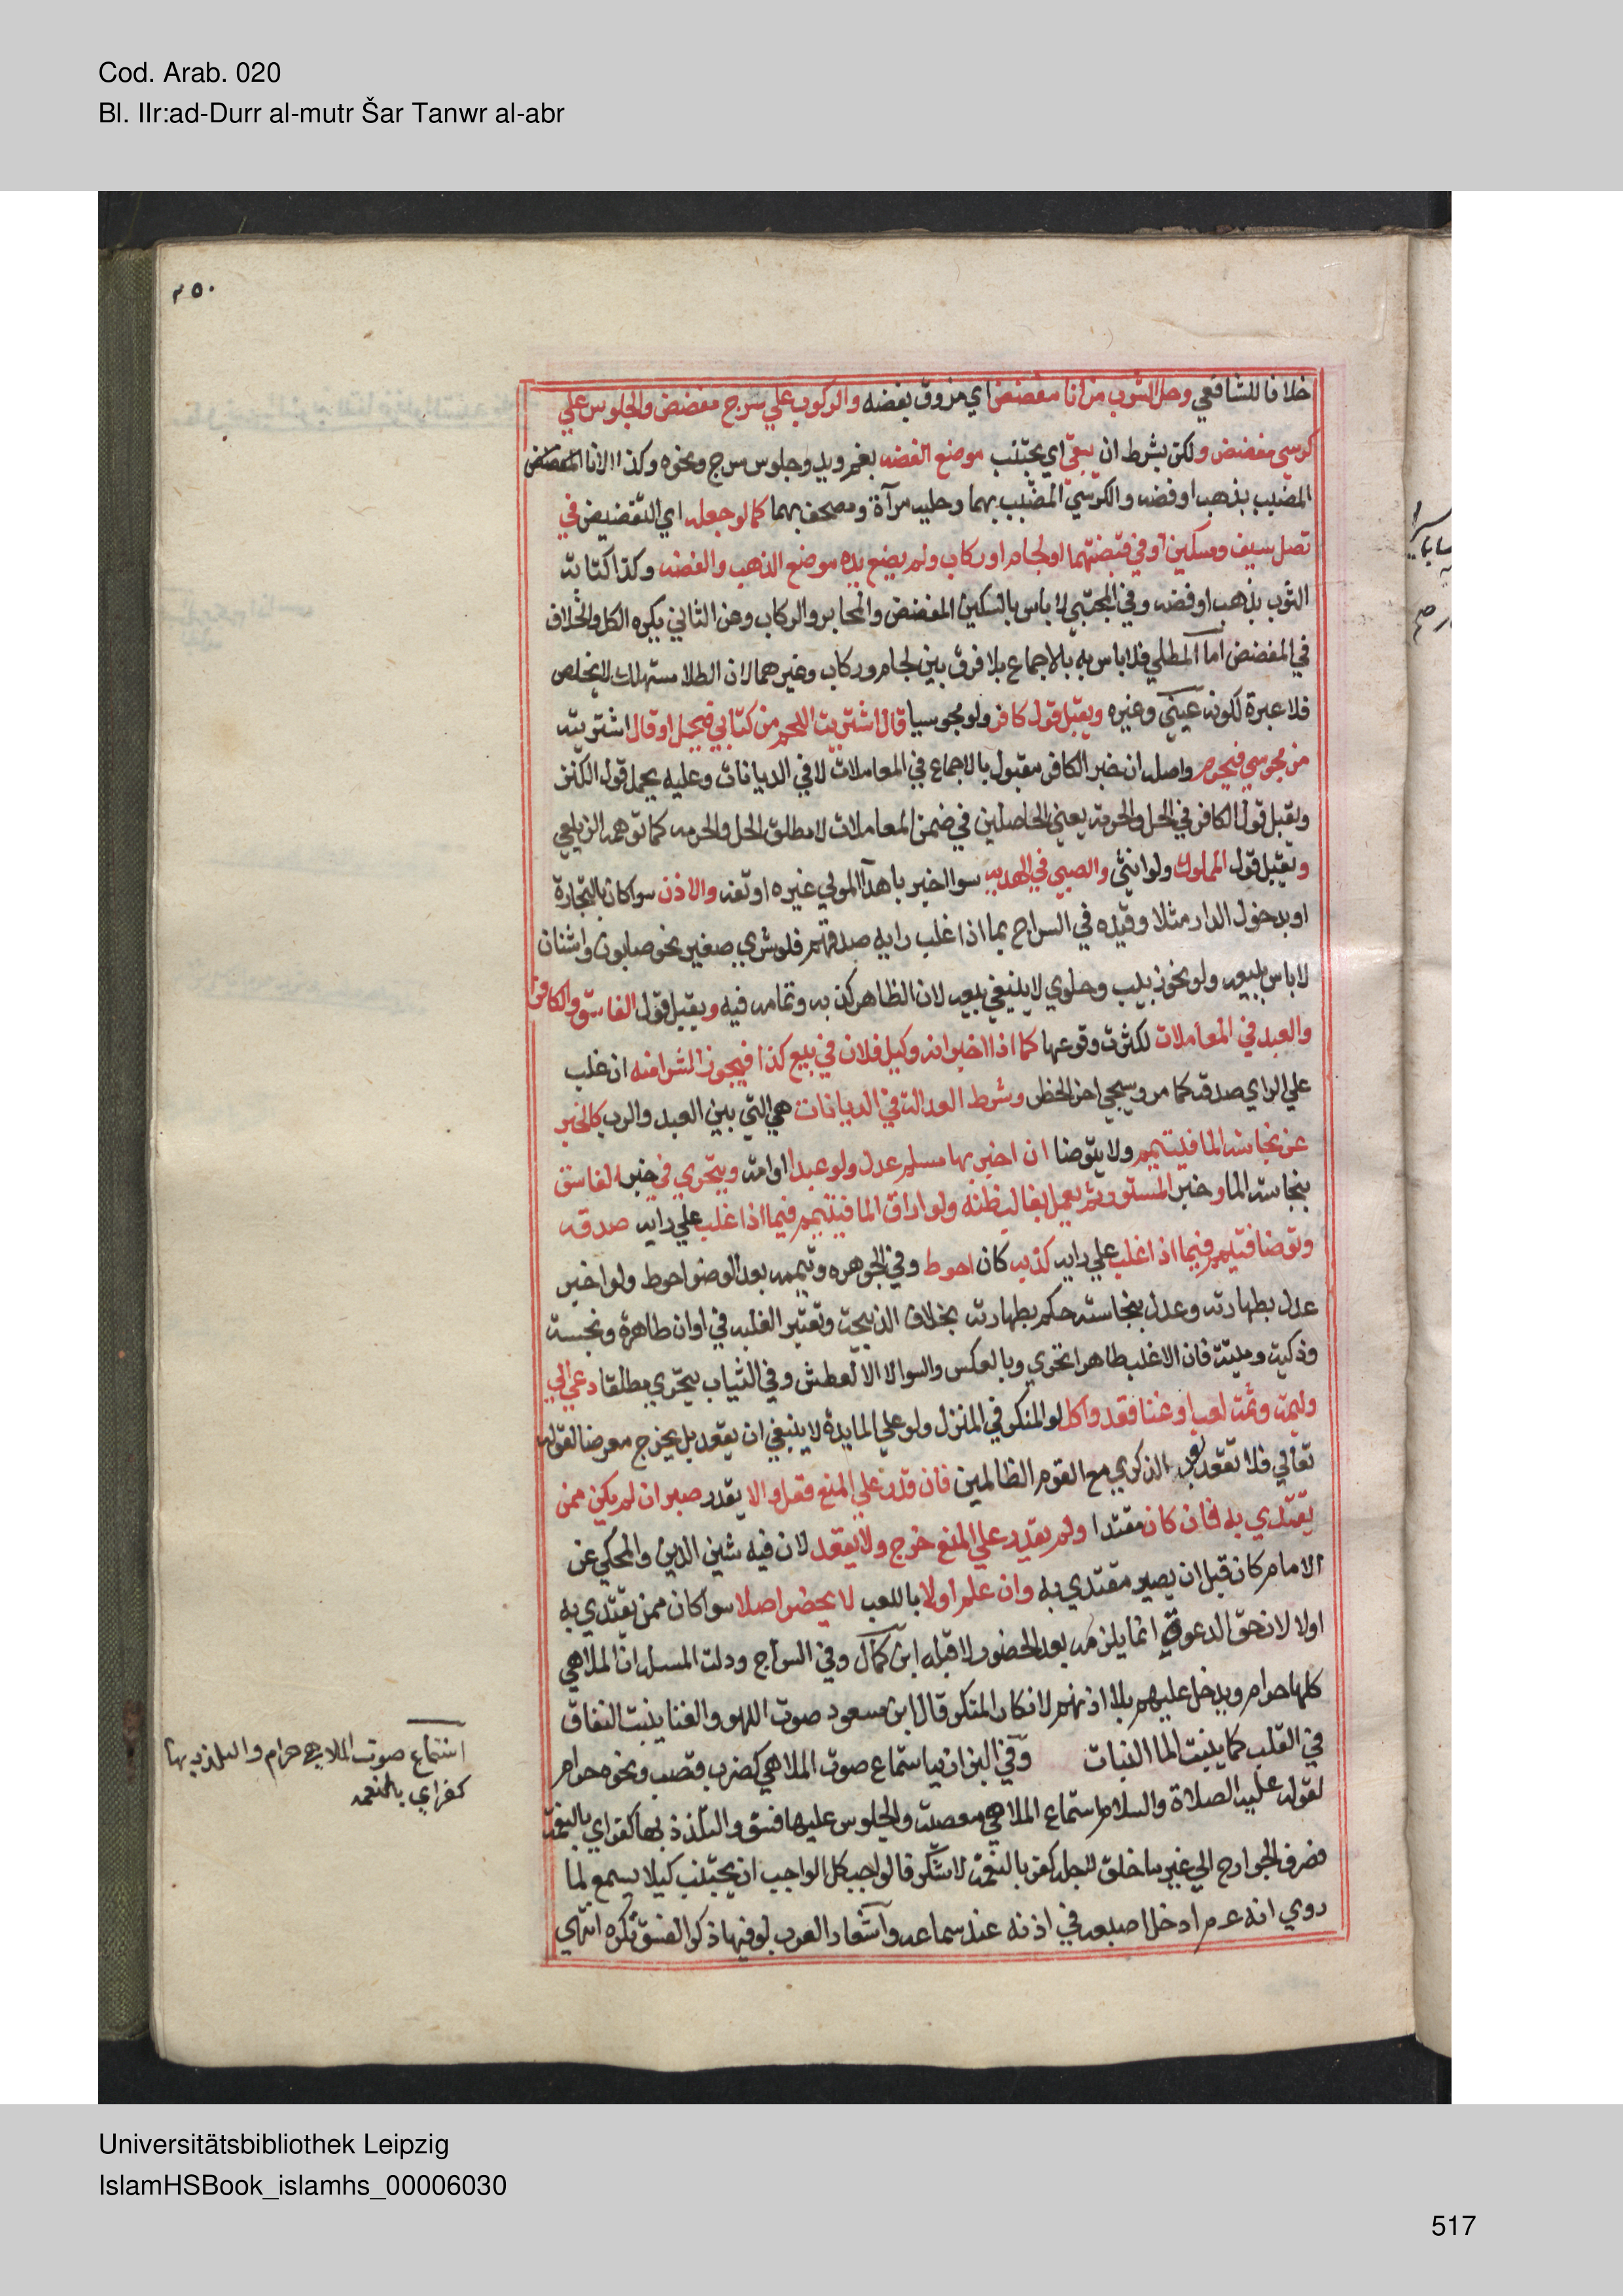 Cod. Arab. 020
Bl. IIr:ad-Durr al-mutr Šar Tanwr al-abr
٢٥٠
خلافا للشافعي وحل الشرب من انا مفضض اي مزوق بفضه والركوب علي سرج مفضض والجلوس علي
كرسي مفضض ولكن بشرط ان يتقي اي يجتنب موضع الفضه بغم ويد وجلوس سرج ونحوه وكذا الانا المفضض
المضبب بذهب او فضه والكرسي المضبب بهما وحليه مرآة ومصحف بهما كما لو جعله اي التفضيض في
نصل سيف وسكين او في قبضتهما او لجام او ركاب ولم يضع يده موضع الذهب والفضه وكذا كتابة
الثوب بذهب او فضه وفي المجتبي لا باس بالسكين المفضض والمحابر والركاب وعن الثاني يكره الكل والخلاف
في المفضض اما المطلي فلا باس به بالاجماع بلا فرق بين لجام وركاب وغيرهما لان الطلا مستهلك لا يخلص
فلا عبرة لكونه عيني وغيره ويقبل قول كافر ولو مجوسيا قال اشتريت اللحم من كتابي فيحل او قال اشتريته
من مجوسي فيحرم واصله ان خبر الكافر مقبول بالاجماع في المعاملات لا في الديانات وعليه يحمل قول الكنز
ويقبل قول الكافر في الحل والحرمة يعني الحاصلين في ضمن المعاملات لا مطلق الحل والحرمه كما توهمه الزيلعي
ويقبل قول المملوك ولو انثي والصبي في الهديه سوا اخبر باهدا المولي غيره او نفسه والاذن سوا كان بالتجارة
او بدخول الدار مثلا وقيده في السراج بما اذا غلب رايه صدقهم فلو شري صغير نحو صابون واشنان
لا باس ببيعه ولو نحو زبيب وحلوي لا ينبغي بيعه لان الظاهر كذبه وتمامه فيه ويقبل قول الفاسق والكافر
والعبد في المعاملات لكثرت وقوعها كما اذا اخبر انه وكيل فلان في بيع كذا فيجوز الشرا منه ان غلب
علي الراي صدقه كما مر وسيجي اخر الحظر وشرط العدالة في الديانات هي التي بين العبد والرب كالخبر
عن نجاسة الما فيتيمم ولا يتوضا ان اخبر بها مسلم عدل ولو عبدا او امة ويتحري في خبر الفاسق
بنجاسة الما وخبر المستور ثم يعمل بغالب ظنه ولو اراق الما فيتيمم فيما اذا غلب علي رايه صدقه
وتوضا فتيمم فيما اذا غلب علي رايه كذبه كان احوط وفي الجوهره وتيممه بعد الوضو احوط ولو اخبر
عدل بطهارته وعدل بنجاسته حكم بطهارته بخلاف الذبيحة وتعتبر الغلبه في اوان طاهرة ونجسة
وذكية وميتة فان الاغلب طاهرا تحري وبالعكس والسوا لا الا لعطش وفي الثياب يتحري مطلقا دعي الي
وليمة وثمة لعب او غنا قعد واكل لو المنكر في المنزل ولو علي المايدة لا ينبغي ان يقعد بل يخرج معرضا لقوله
تعالي فلا تقعد بعد الذكري مع القوم الظالمين فان قدر علي المنع فعل والا يقدر صبر ان لم يكن ممن
يقتدي به فان كان مقتدا ولم يقدر علي المنع خرج ولا يقعد لان فيه شين الدين والمحكي عن
الامام كان قبل ان يصير مقتدي به وان علم اولا باللعب لا يحضر اصلا سوا كان ممن يقتدي به
اولا لان حق الدعوة انما يلزمه بعد الحضور لا قبله ابن كمال وفي السراج ودلت المسله ان الملاهي
كلها حرام ويدخل عليهم بلا اذنهم لانكار المنكر قال ابن مسعود صوت اللهو والغنا ينبت النفاق
في القلب كما ينبت الما النبات وفي البزازيه استماع صوت الملاهي كضرب قصب ونحوه حرام
لقوله عليه الصلاة والسلام استماع الملاهي معصية والجلوس عليها فسق والتلذذ بها كفر اي بالنعمة
فصرف الجوارح الي غير ما خلق لاجله كفر بالنعمة لا شكر فالواجب كل الواجب ان يجتنب كيلا يسمع لما
روي انه عم ادخل اصبعه في اذنه عند سماعه وآشعار العرب لو فيها ذكر الفسق تكره انتهي
استماع صوت الملاهي حرام والتلذذ بها
كفر اي بالنعمه
Universitätsbibliothek Leipzig
IslamHSBook_islamhs_00006030
517